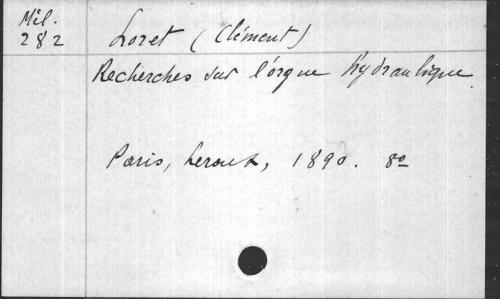 Mil.
282
Loret (Clément)
Recherches sur l'orgue hydraulique
Paris, Leroux, 1890. 8o